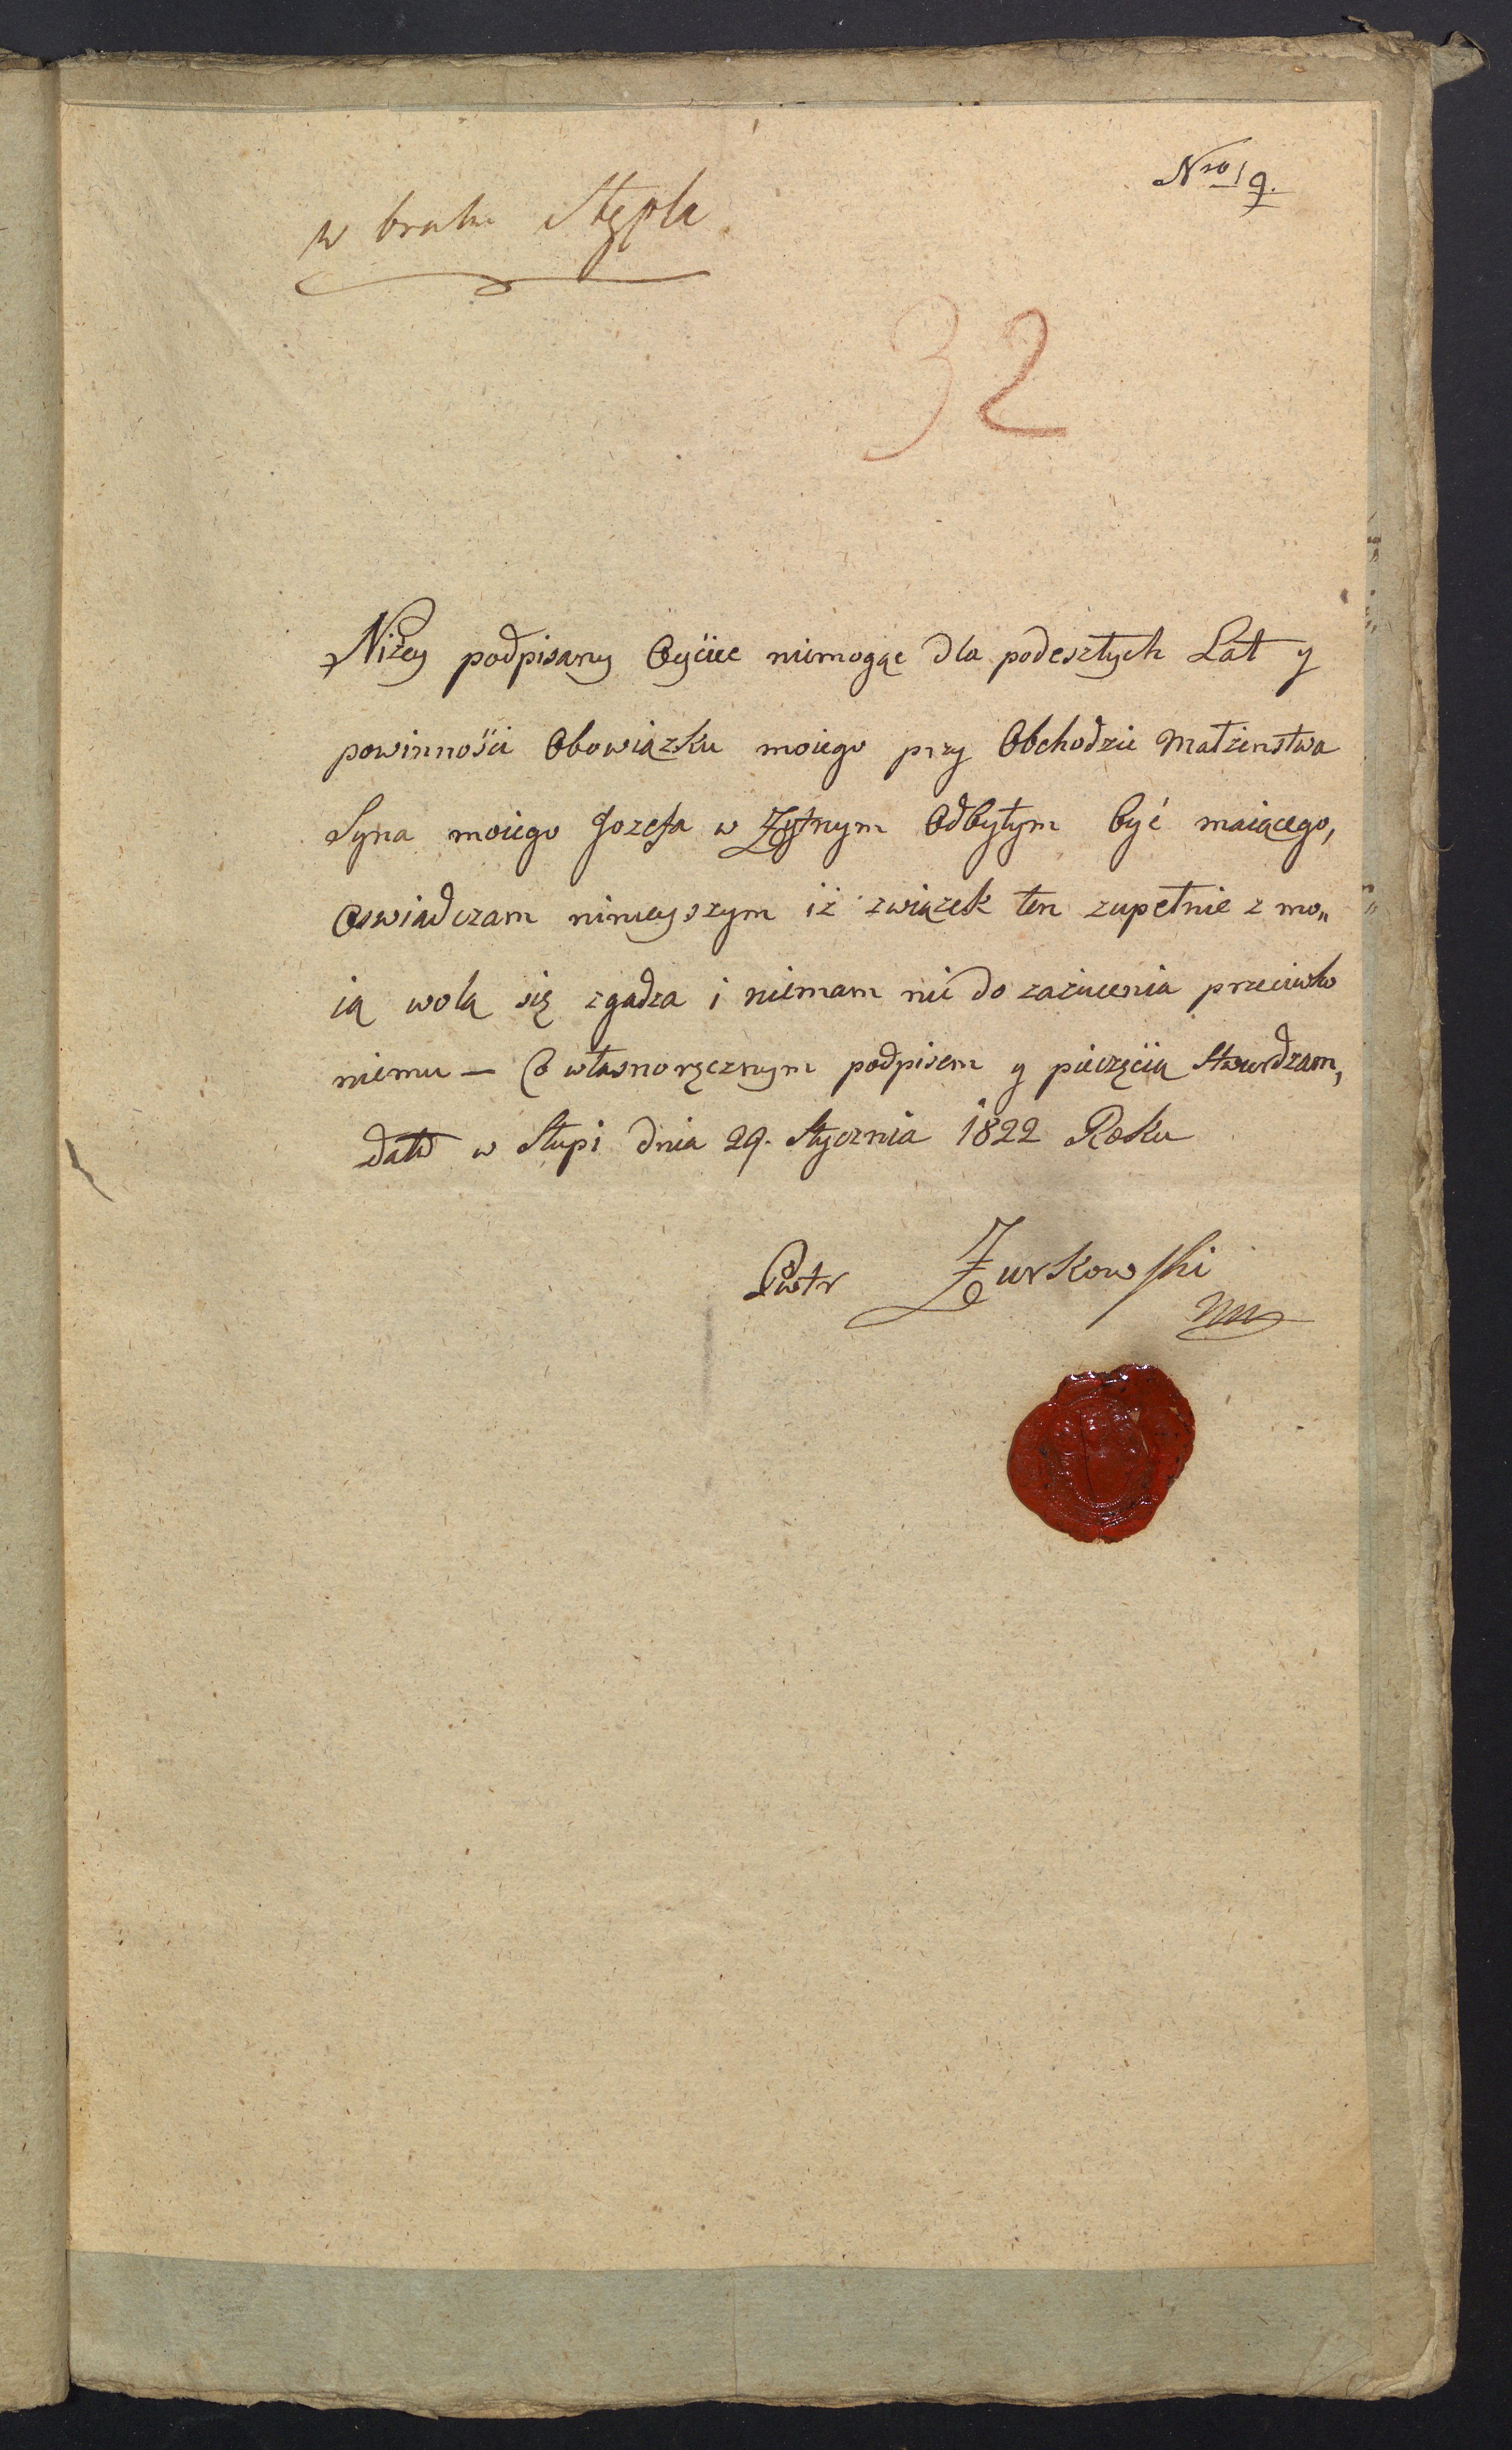 Nro 19.
w braku Stępla
32
Niżey podpisany Oyciec niemogąc dla podeszłych Lat y
powinności Obowiązku moiego przy Obchodzie Małżenstwa
Syna moiego Jozefa w Żytnym Odbytym być maiącego,
Oswiadczam ninieyszym iż związek ten zupełnie z mo„
ią wolą się zgadza i niemam nic do zażucenia przeciwko
niemu — Co własnoręcznym podpisem y pieczęcią stwierdzam,
Datt w Słupi dnia 29. Stycznia 1822 Roku
Piotr Żurkowski
mp